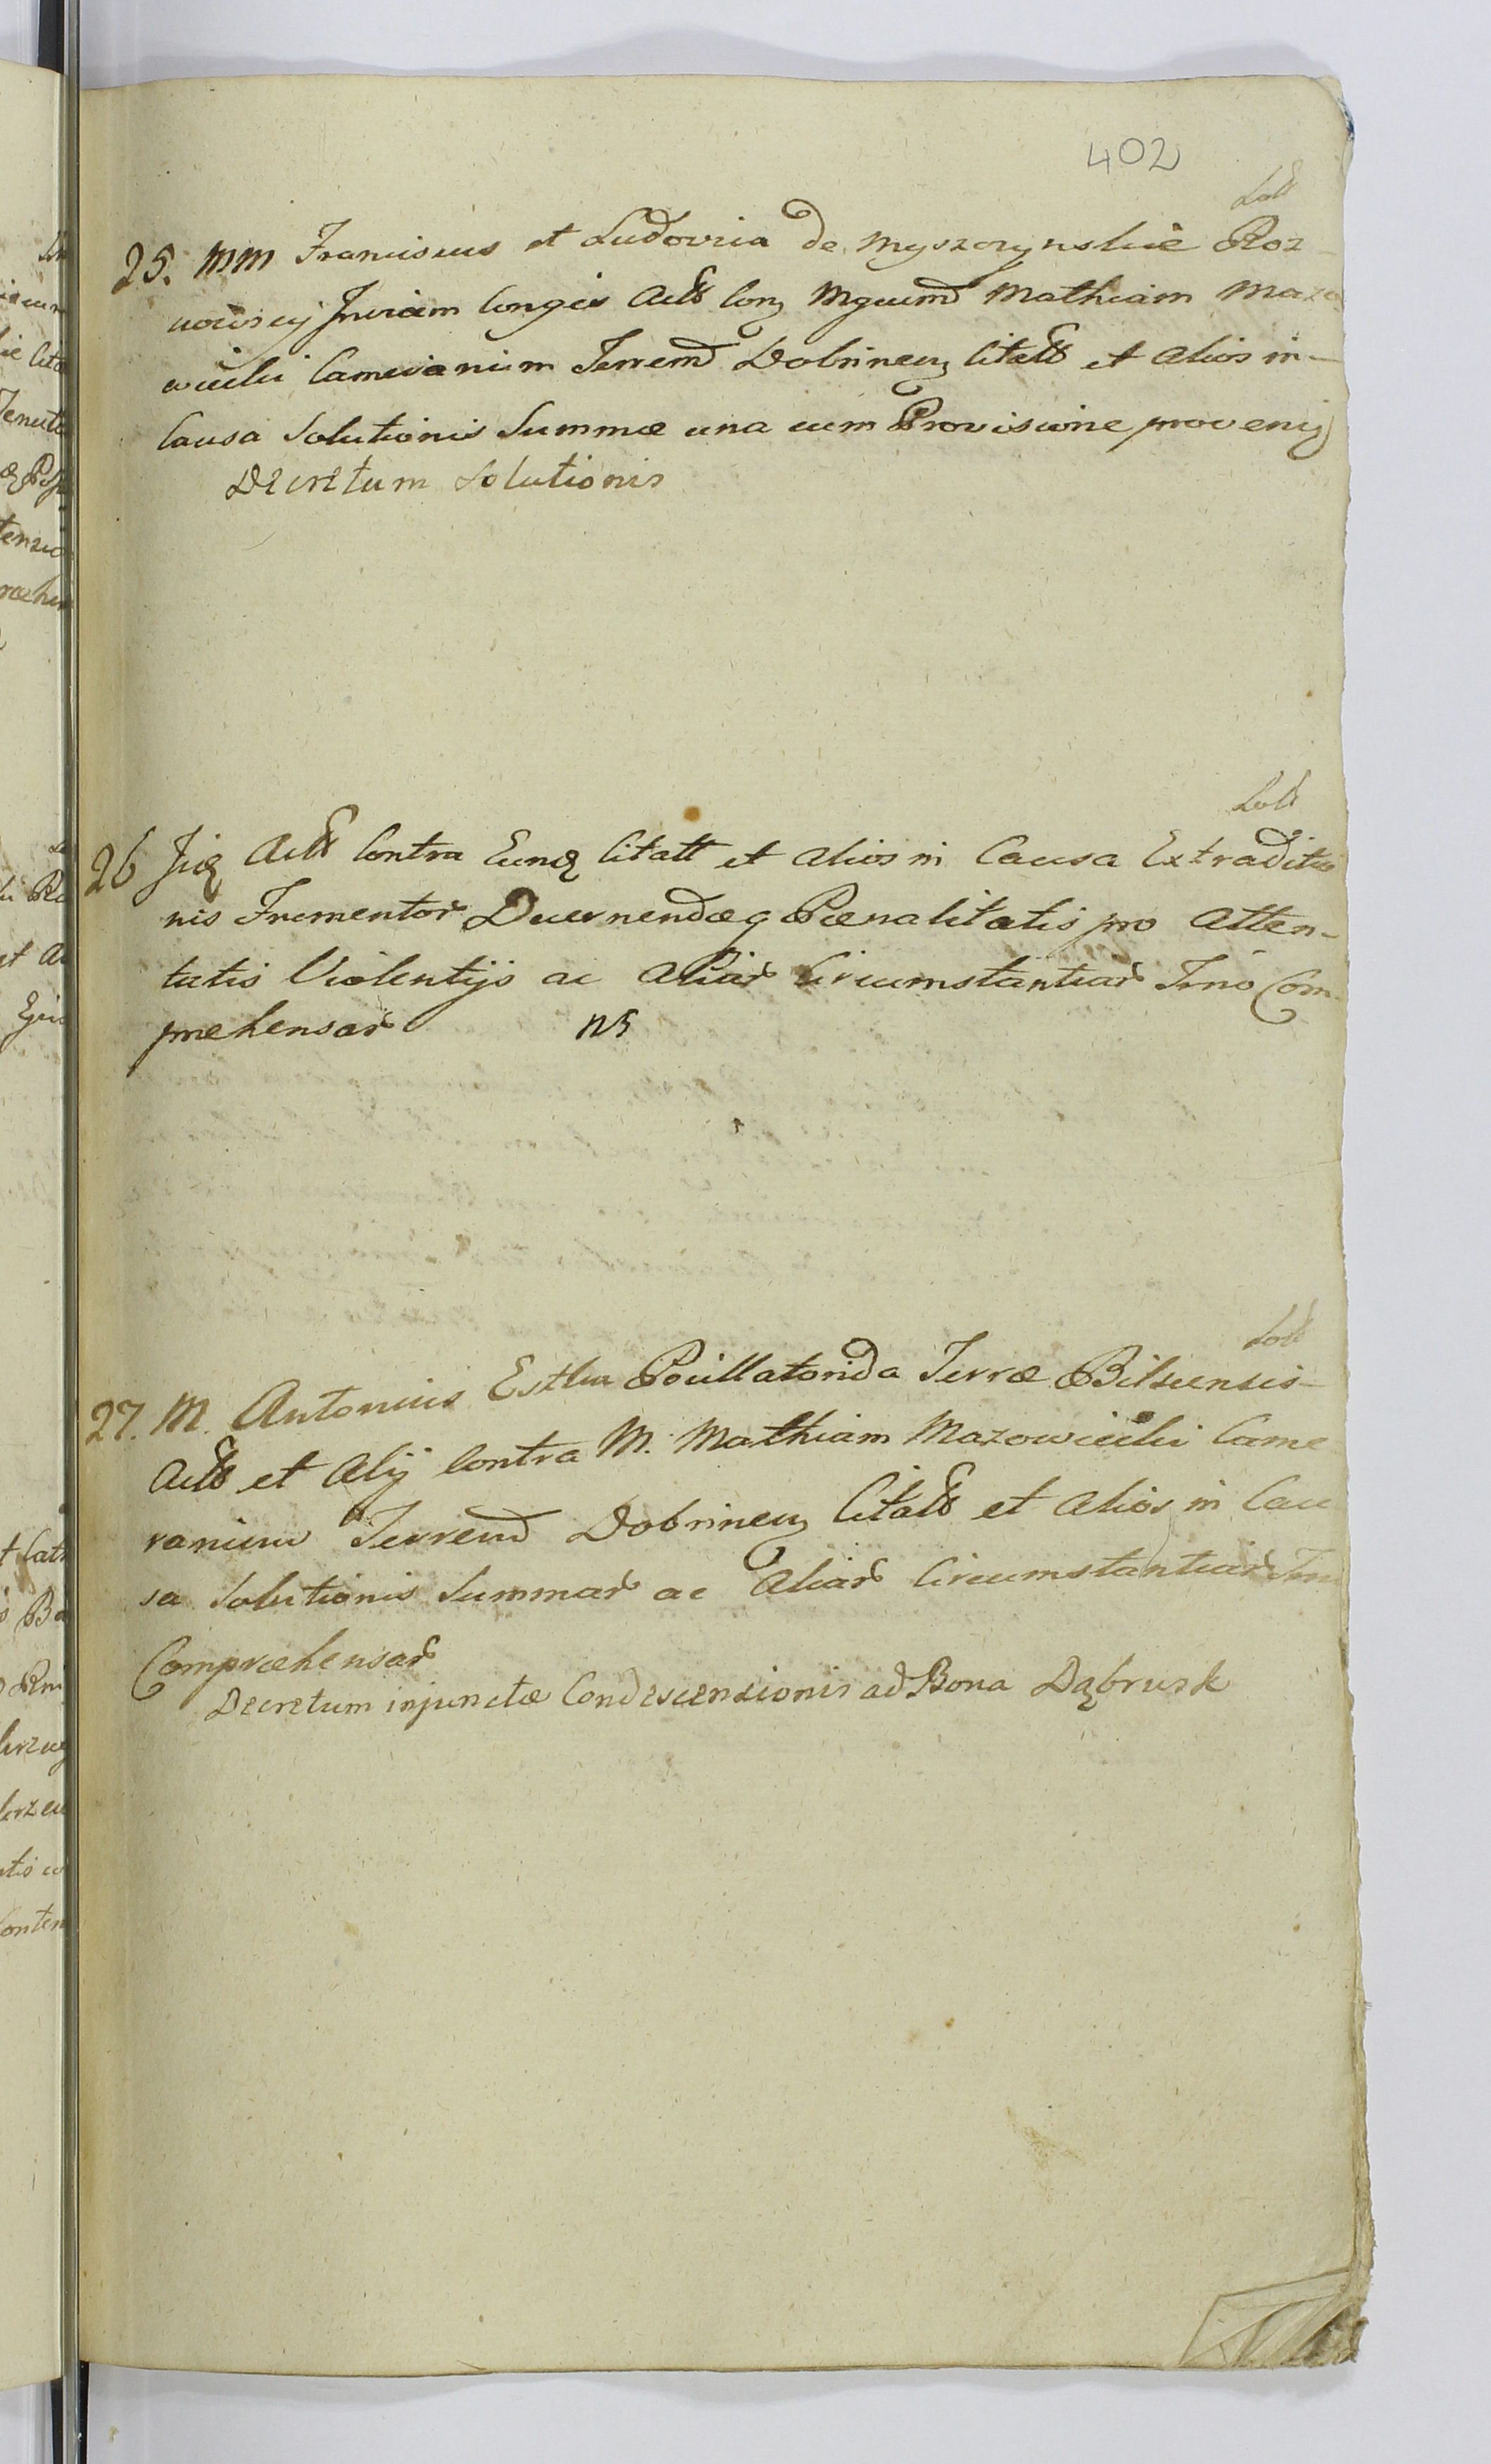 402
25. MM Franciscus et Ludovica de Myszczynskie Roz-
nowscy Invicem Conges Actt Con Mgcumd Mathiam Mazo
wiecki Camerarium Terremd Dobrinen Citatt et Alios in-
Causa Solutionis Summæ una cum Provisione provenien
Decretum Solutionis
26 Iidem Actt Contra Eund Citatt et Alios in Causa Extraditio
nis Frumentor Decernendæq Pœnalitatis pro Atten-
tatis Violentijs ac Aliar Circumstantiar Trno Com
præhensar NS
27. M. Antonius Estken Pocillatorida Terræ Bilscensis-
Actt et Alij Contra M. Mathiam Mazowiecki Came
rarium Terremd Dobrinen Citatt et Alios in Cau
sa Solutionis Summar ac Aliar Circumstantiar Trno
Compræhensar
Decretum injunctæ Condescensionis ad Bona Dąbrusk